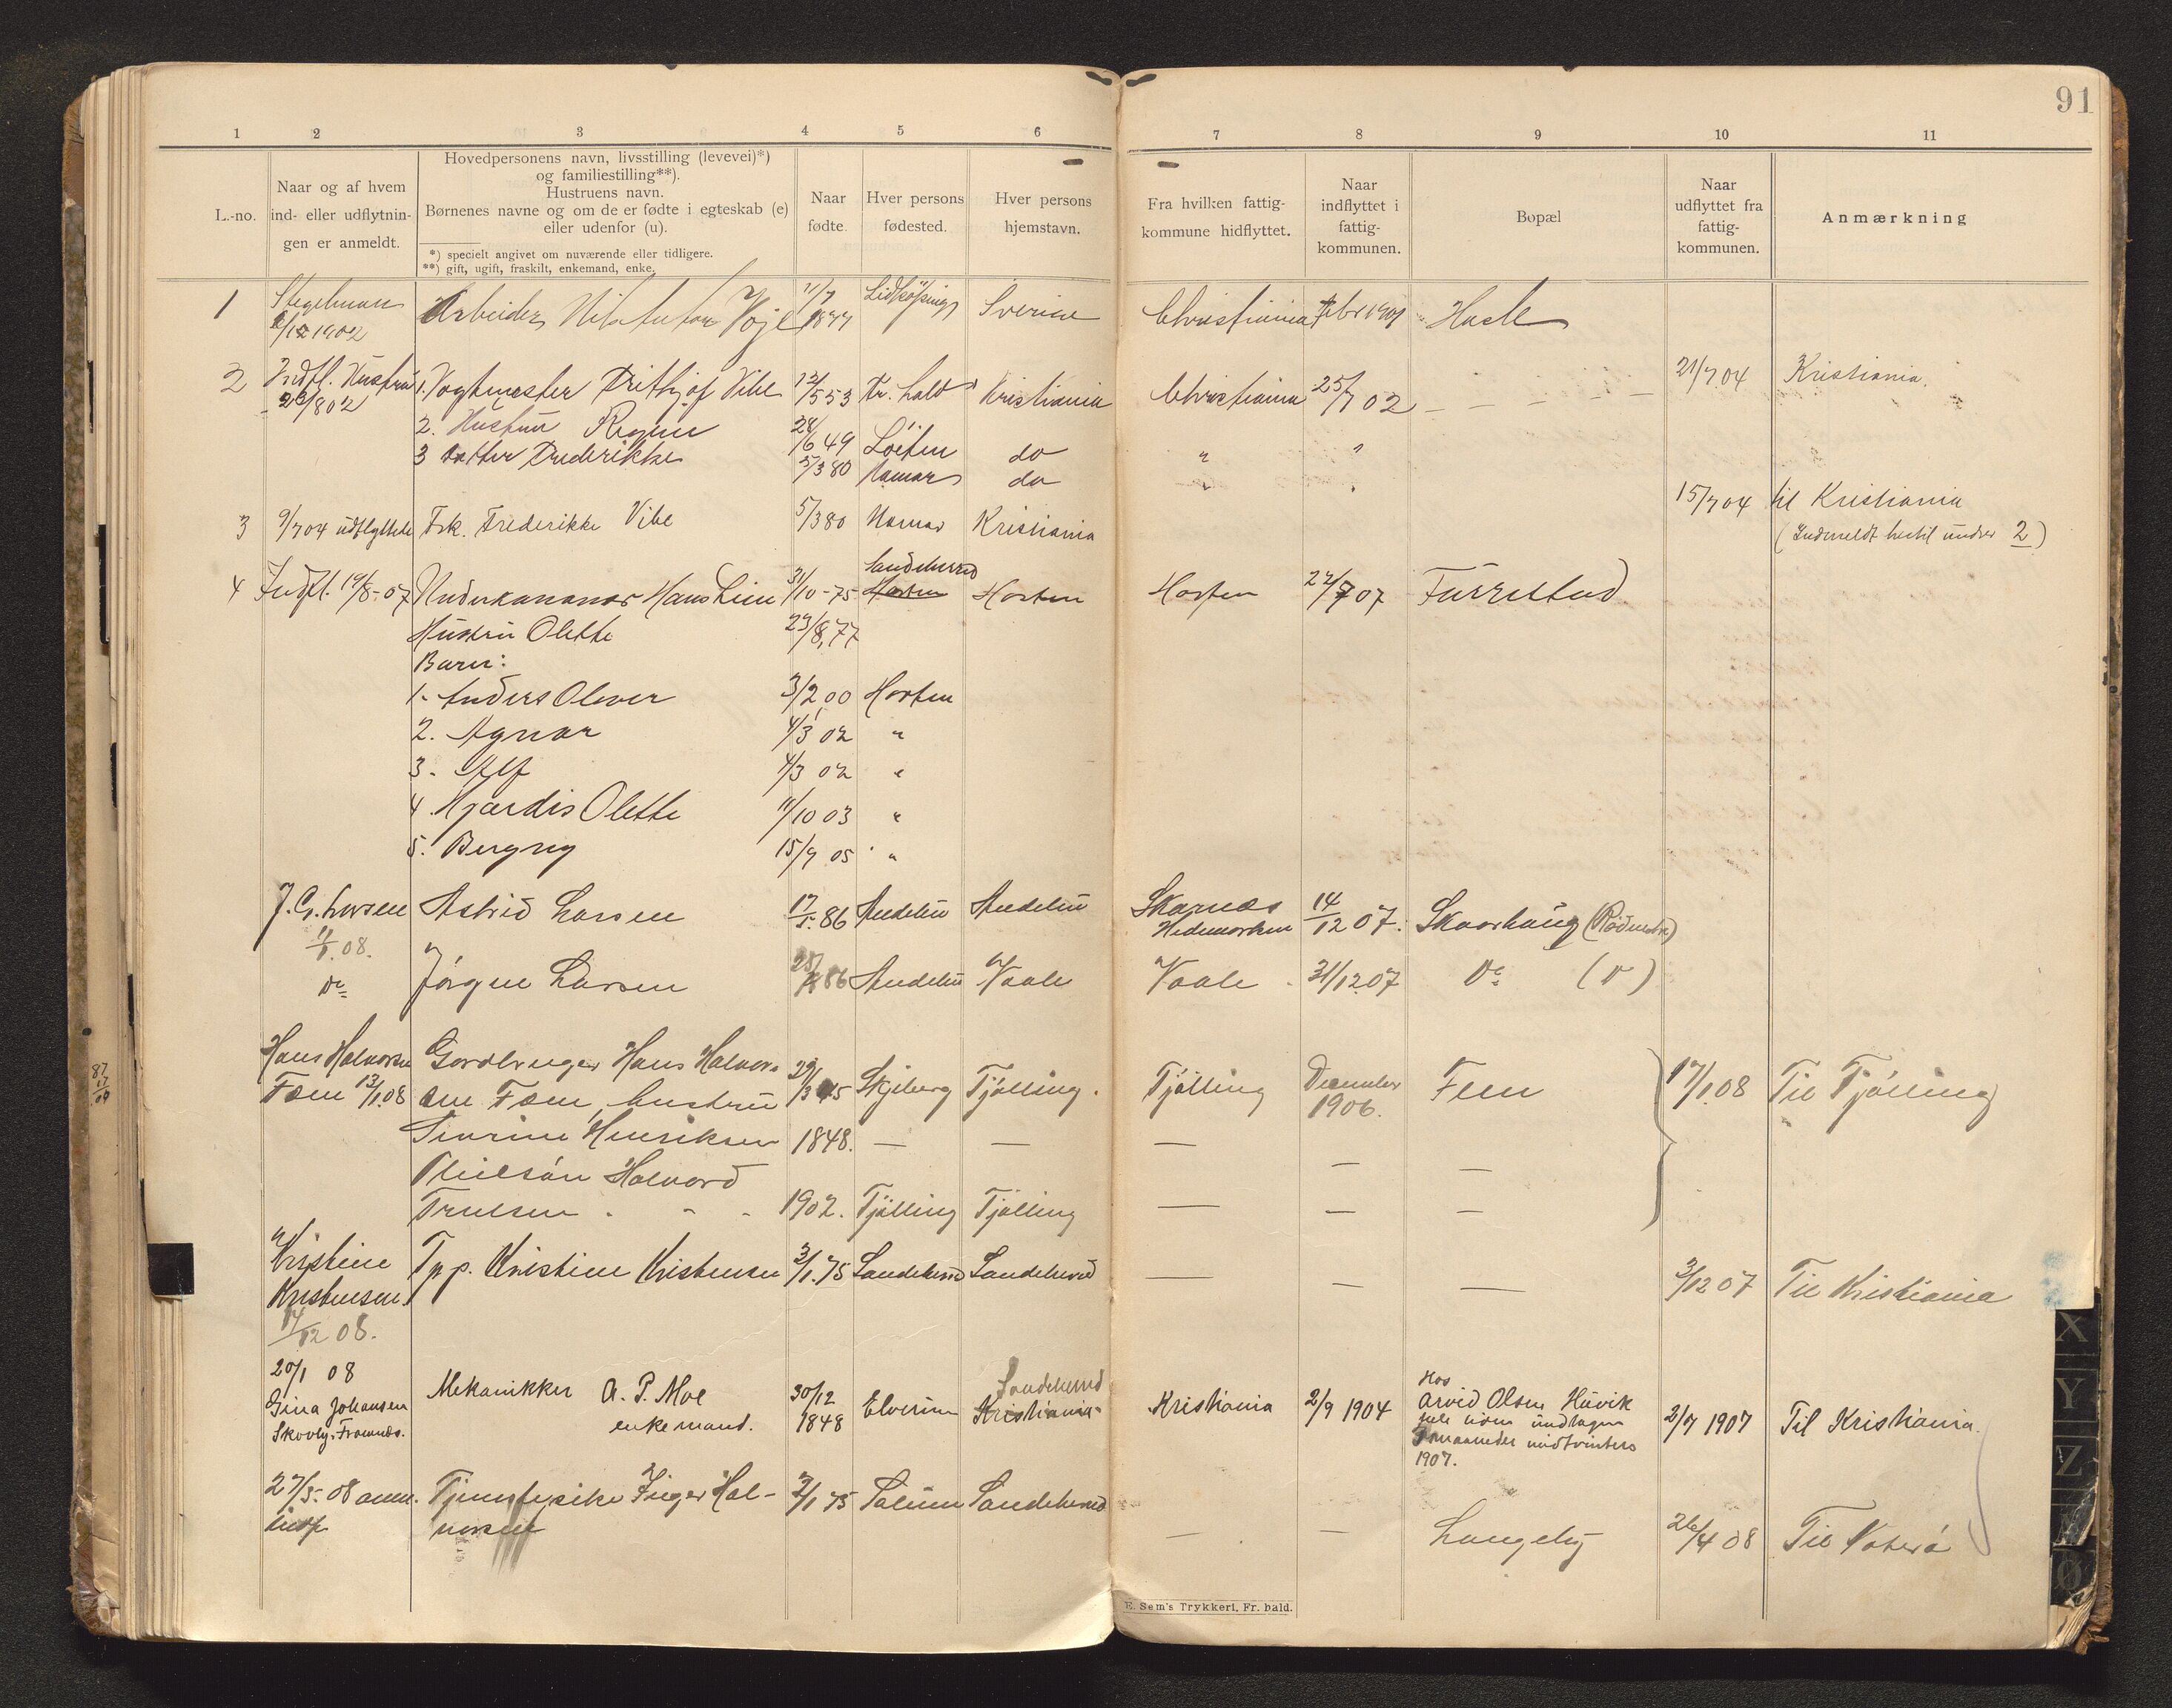 91
1 2 3 4 5 6 7 8 9 10 11
L.-no.
Naar og af hvem
ind- eller udflytnin-
gen er anmeldt.
Hovedpersonens navn, livsstilling (levevei)*)
og familiestilling**).
Hustruens navn.
Børnenes navne og om de er fødte i egteskab (e)
eller udenfor (u).
*) specielt angivet om nuværende eller tidligere.
**) gift, ugift, fraskilt, enkemand, enke.
Naar
fødte.
Hver persons
fødested.
Hver persons
hjemstavn.
Fra hvilken fattig-
kommune hidflyttet.
Naar
indflyttet i
fattig-
kommunen.
Bopæl
Naar
udflyttet fra
fattig-
kommunen.
Anmærkning
1 Stegelmann Arbeider 11/7 Lidköping Sverige Christiania Febr 1901 Hasle
/12 1902 1877
2 Indfl. Hustru 1. Vogtmester Frithjof Vibe 12/5 53 Fr. hald Kristiania Christiania 25/7 02 — — — — — 21/7 04 Kristiania.
23/8 02
2. Hustru Regine 28/6 49 Löiten do " "
3 datter Frederikke 5/3 80 Hamar do " "
3 9/7 04 udflyttede Frk. Frederikke Vibe 5/3 80 Hamar Kristiania 15/7 04 til Kristiania
(Indmeldt hertil under 2)
Sandeherred
4 Indfl. 19/8-07 Underkanoner Hans Lien 31/10-75 Horten Horten Horten 22/7 07 Furustad
Hustru Olette 23/8, 77
Barn:
1. Anders Olaver 3/2, 00 Horten
2. Agnar 4/3 02 "
3. Alf 4/3 02 "
4. Hjørdis Olette 11/10 03 "
5. Bergny 15/9 05 "
J. G. Larsen Astrid Larsen 17/5. 86 Andebu Andebu Skarnes 14/12 07. Skorhaug
Hedemarken
4/1. 08.
Do Jörgen Larsen 86 Andebu Vaale Vaale 31/12 07 Do (D)
Hans Halvorsen Gardbruger Hans Halvor- 29/3 45 Skjeberg Tjölling. Tjölling December Fem 17/1 08 Til Tjölling
Fem 13/1. 08 sen Fem, hustru 1906.
Severine Henriksen 1848. — — —
Pleiesön Halvord — —
Trulsen . - - 1902. Tjölling Tjölling — — —
Kristine Tpp. Kristine Kristensen 3/1. 75 Sandeherred Sandeherred — — — 3/12 07 Til Kristiania
Kristensen.
14/12 08.
20/1 08
Gina Johansen Mekanikker A. P. Moe 30/12 Elverum Sandeherred Kristiania 2/9 1904 Hos
Skovly. Framnæs. enkemand. 1848 Kristiania Arvid Olsen Huvik 2/7 1907 Til Kristiania.
hele tiden undtagen
maaneder midtvinters
1907.
27/5-08 anm. Tjenestepike Inger Hal- 3/1 75 Solum Sandeherred
vorsen — — Langeby 26/4 08 Til Noterö
E. Sem's Trykkeri, Fr. hald.
X
Y
Z
Ø